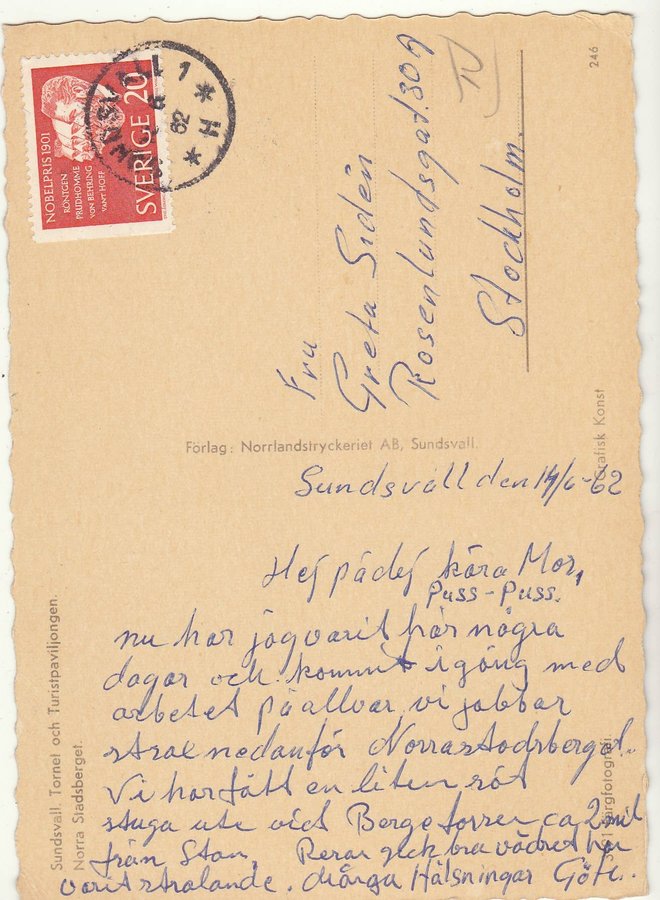 NOBELPRIS 1901
RÖNTGEN
PRUDHOMME
VON BEHRING
VANT HOFF
SVERIGE 20
SUNDSVALL 1
62
246
Fru
Greta Sidén
Rosenlundsgat. 30 A
Stockholm.
Förlag: Norrlandstryckeriet AB, Sundsvall.
Grafisk Konst
Sundsvall. Tornet och Turistpaviljongen.
Norra Stadsberget.
Färgfotografi
Sundsvall den 14/6-62
Hej pådej kära Mor,
Puss-Puss.
nu har jag varit här några
dagar och kommit igång med
arbetet på allvar vi jobbar
strax nedanför Norrastadsberget.
Vi har fått en liten söt
stuga ute vid Bergeforsen ca 2 mil
från Stan. Resan gick bra vädret har
varit strålande. Många Hälsningar Göte..